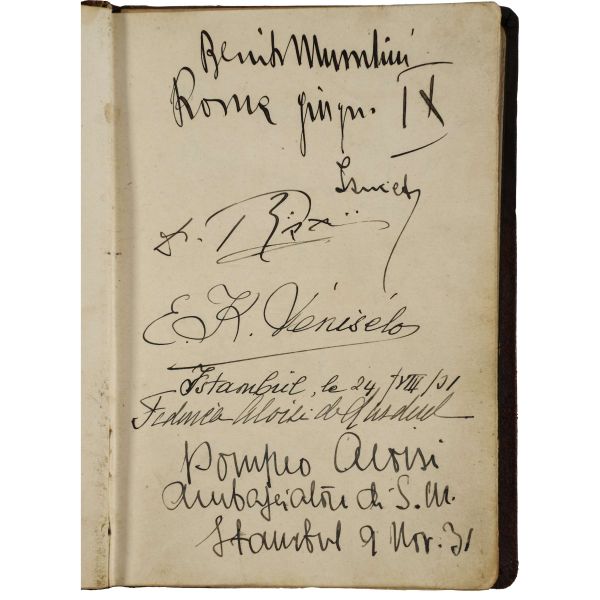 Benito Mussolini
Roma giugn. IX
Ismet
Dr. T. Rüştü
E. K. Véniselos
Istambul, le 24/VIII/31
Federica Aloisi de
Pompeo Aloisi
Ambasciatore di S.M.
Istambul 9 Nov. 31